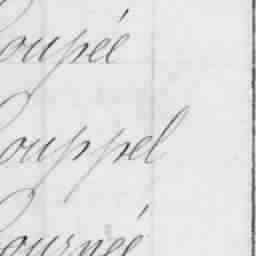 Coupée
Couppel
Cournéé